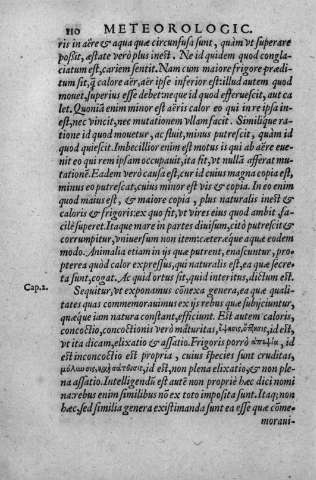 110 METEOROLOGIC.
ris in aëre & aqua quæ circunfusa sunt, quàm vt superare
possit, æstate verò plus inest. Ne id quidem quod congla-
ciatum est, cariem sentit. Nam cum maiore frigore prædi-
tum sit, q̃ calore aër, aër ipse inferior est: illud autem quod
mouet, superius esse debet: neque id quod efferuescit, aut ca
let. Quoniã enim minor est aëris calor eo qui in re ipsa in-
est, nec vincit, nec mutationem vllam facit. Similiq́ue ra-
tione id quod mouetur, ac fluit, minus putrescit, quàm id
quod quiescit. Imbecillior enim est motus is qui ab aëre eue-
nit eo qui rem ipsam occupauit, ita fit, vt nullã afferat mu-
tationẽ. Eadem verò causa est, cur id cuius magna copia est,
minus eo putrescat, cuius minor est vis & copia. In eo enim
quod maius est, & maiore copia, plus naturalis inest &
caloris & frigoris: ex quo fit, vt vires eius quod ambit, fa-
cilè superet. Itaque mare in partes diuisum, citò putrescit &
corrumpitur, vniuersum non item: cæteræque aquæ eodem
modo. Animalia etiam in ijs quæ putrent, enascuntur, pro-
pterea quòd calor expressus, qui naturalis est, ea quæ secre-
ta sunt, cogat. Ac quid ortus sit, quid interitus, dictum est.
Cap. 2. Sequitur, vt exponamus cõnexa genera, ea quæ quali-
tates quas commemorauimus ex ijs rebus quæ subijciuntur,
quæque iam natura constant, efficiunt. Est autem caloris,
concoctio, concoctionis verò maturitas, ἕψησις, ὄπτησις, id est,
vt ita dicam, elixatio & assatio. Frigoris porrò ἀπεψία, id
est inconcoctio est propria, cuius species sunt cruditas,
μόλωσις, καὶ στάτευσις, id est, non plena elixatio, & non ple-
na assatio. Intelligendũ est autẽ non propriè hæc dici nomi
na rebus enim similibus nõ ex toto imposita sunt. Itaq; non
hæc, sed similia genera existimanda sunt ea esse quæ cõme-
moraui-